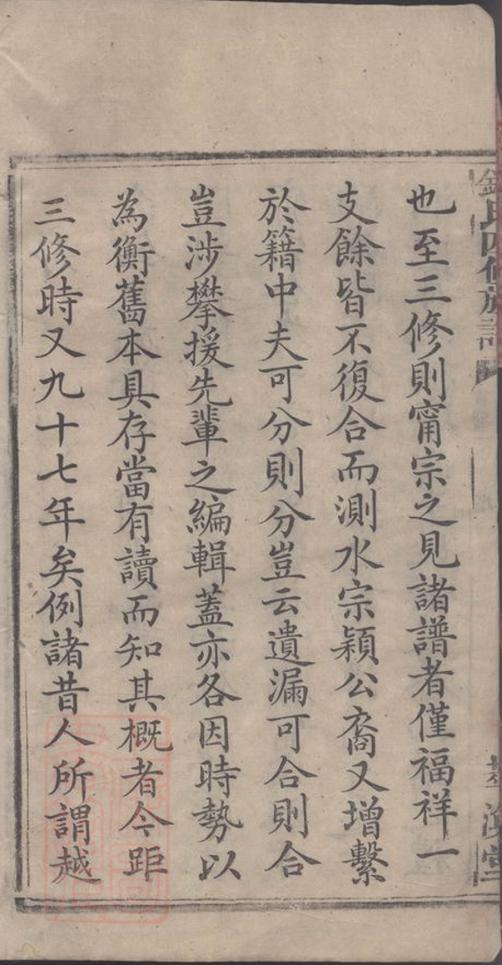 也至三修則甯宗之見諸譜者僅福祥一
支餘皆不復合而測水宗穎公裔又增繫
於籍中夫可分則分豈云遺漏可合則合
豈涉攀援先輩之編輯蓋亦各因時勢以
為衡舊本具存當有讀而知其概者今距
三修時又九十七年矣例諸昔人所謂越